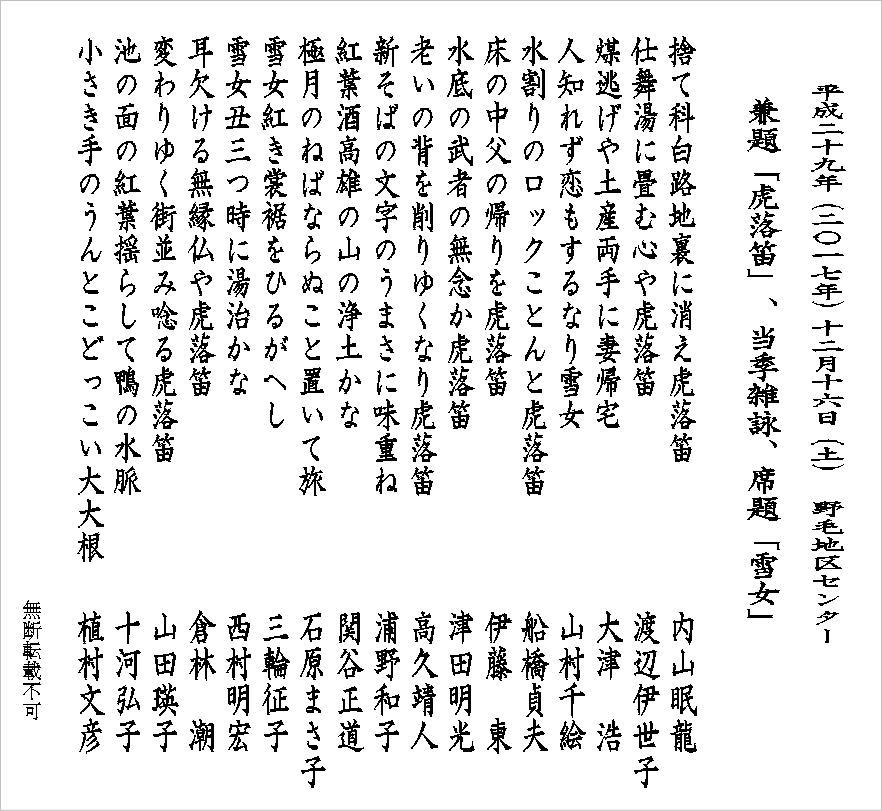 平成二十九年(二〇一七年)十二月十六日(土) 野毛地区センター
兼題「虎落笛」、当季雑詠、席題「雪女」
捨て科白路地裏に消え虎落笛 内山眠龍
仕舞湯に畳む心や虎落笛 渡辺伊世子
煤逃げや土産両手に妻帰宅 大津 浩
人知れず恋もするなり雪女 山村千絵
水割りのロックことんと虎落笛 船橋貞夫
床の中父の帰りを虎落笛 伊藤 東
水底の武者の無念か虎落笛 津田明光
老いの背を削りゆくなり虎落笛 高久靖人
新そばの文字のうまさに味重ね 浦野和子
紅葉酒高雄の山の浄土かな 関谷正道
極月のねばならぬこと置いて旅 石原まさ子
雪女紅き裳裾をひるがへし 三輪征子
雪女丑三つ時に湯治かな 西村明宏
耳欠ける無縁仏や虎落笛 倉林 潮
変わりゆく街並み唸る虎落笛 山田瑛子
池の面の紅葉揺らして鴨の水脈 十河弘子
小さき手のうんとこどっこい大大根 植村文彦
無断転載不可